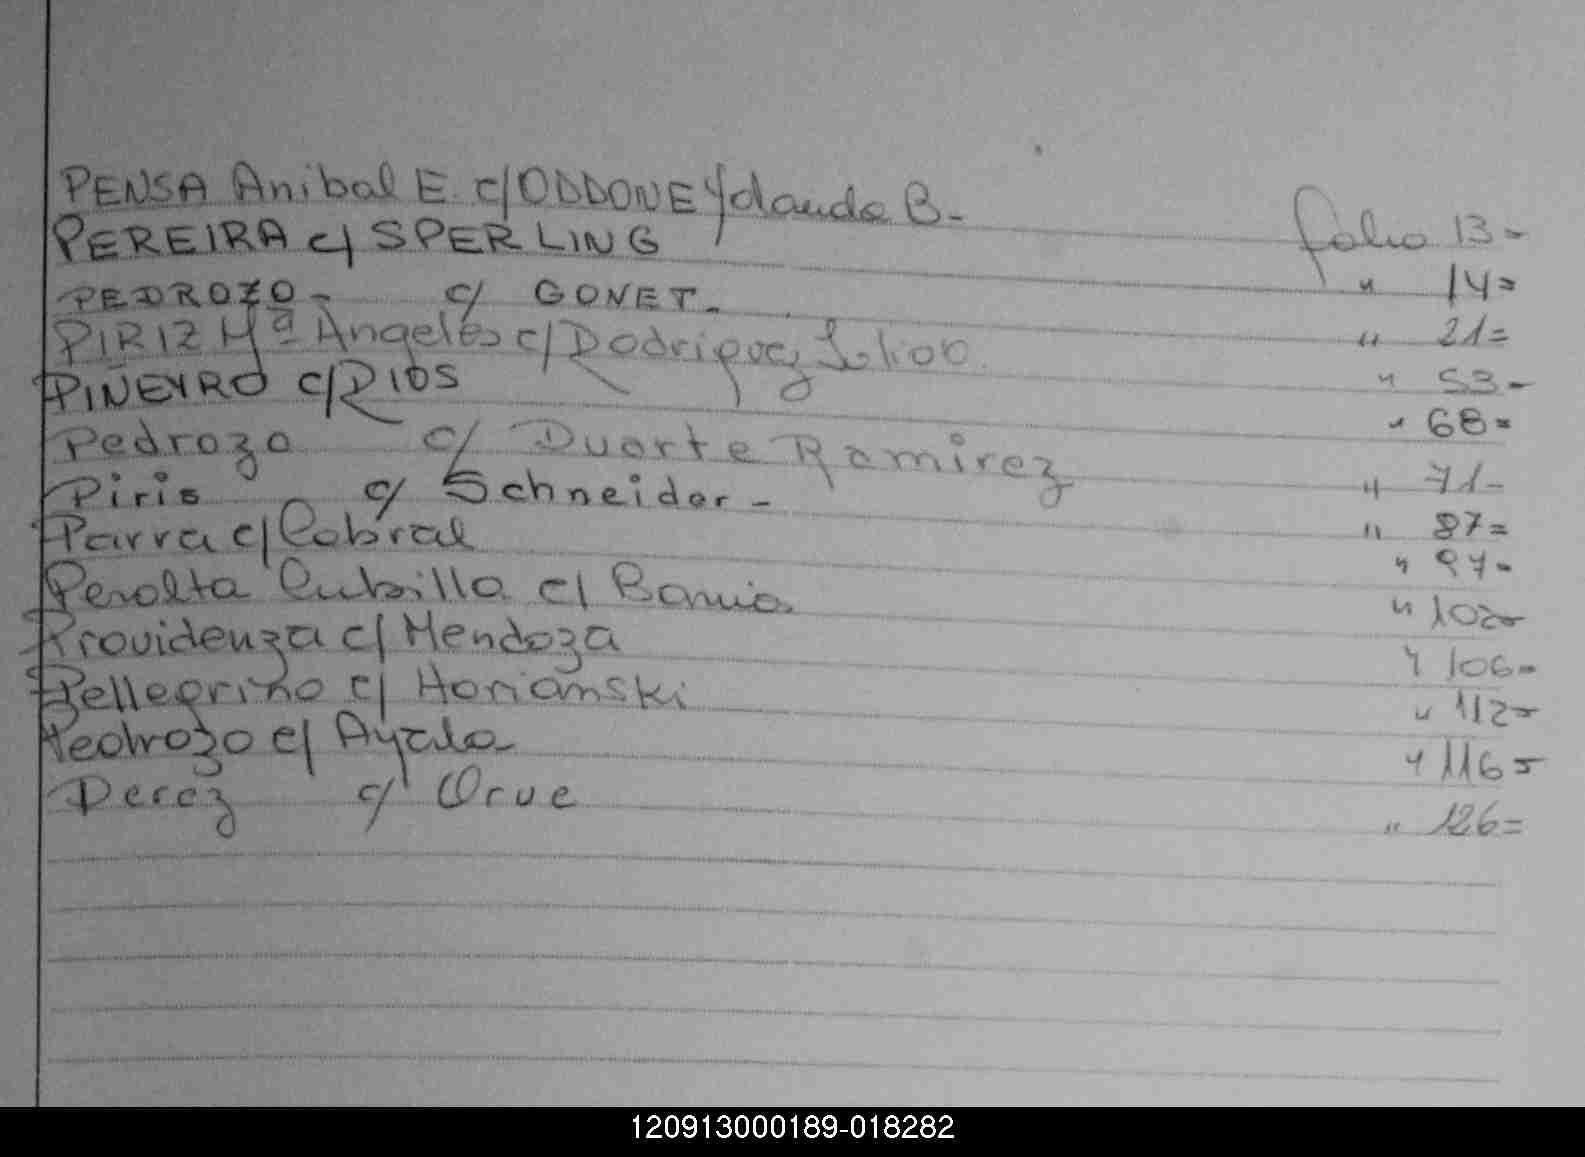 PENSA Anibal E. c/ ODDONE Yolanda B- folio 13-
PEREIRA c/ SPERLING " 14=
PEDROZO- c/ GONET- " 21=
PIRIZ Mª Angeles c/ Rodriguez Julio O. " 53-
PIÑEYRO c/ RIOS " 68=
Pedrozo c/ Duarte Ramirez " 71-
Piris c/ Schneider- " 87=
Parra c/ Cabral " 97-
Peralta Cubilla c/ " 102-
Providenza c/ Mendoza " 106-
Pellegrino c/ Horianski " 112-
Pedrozo c/ Ayala " 116-
Perez c/ Orue " 126=
120913000189-018282